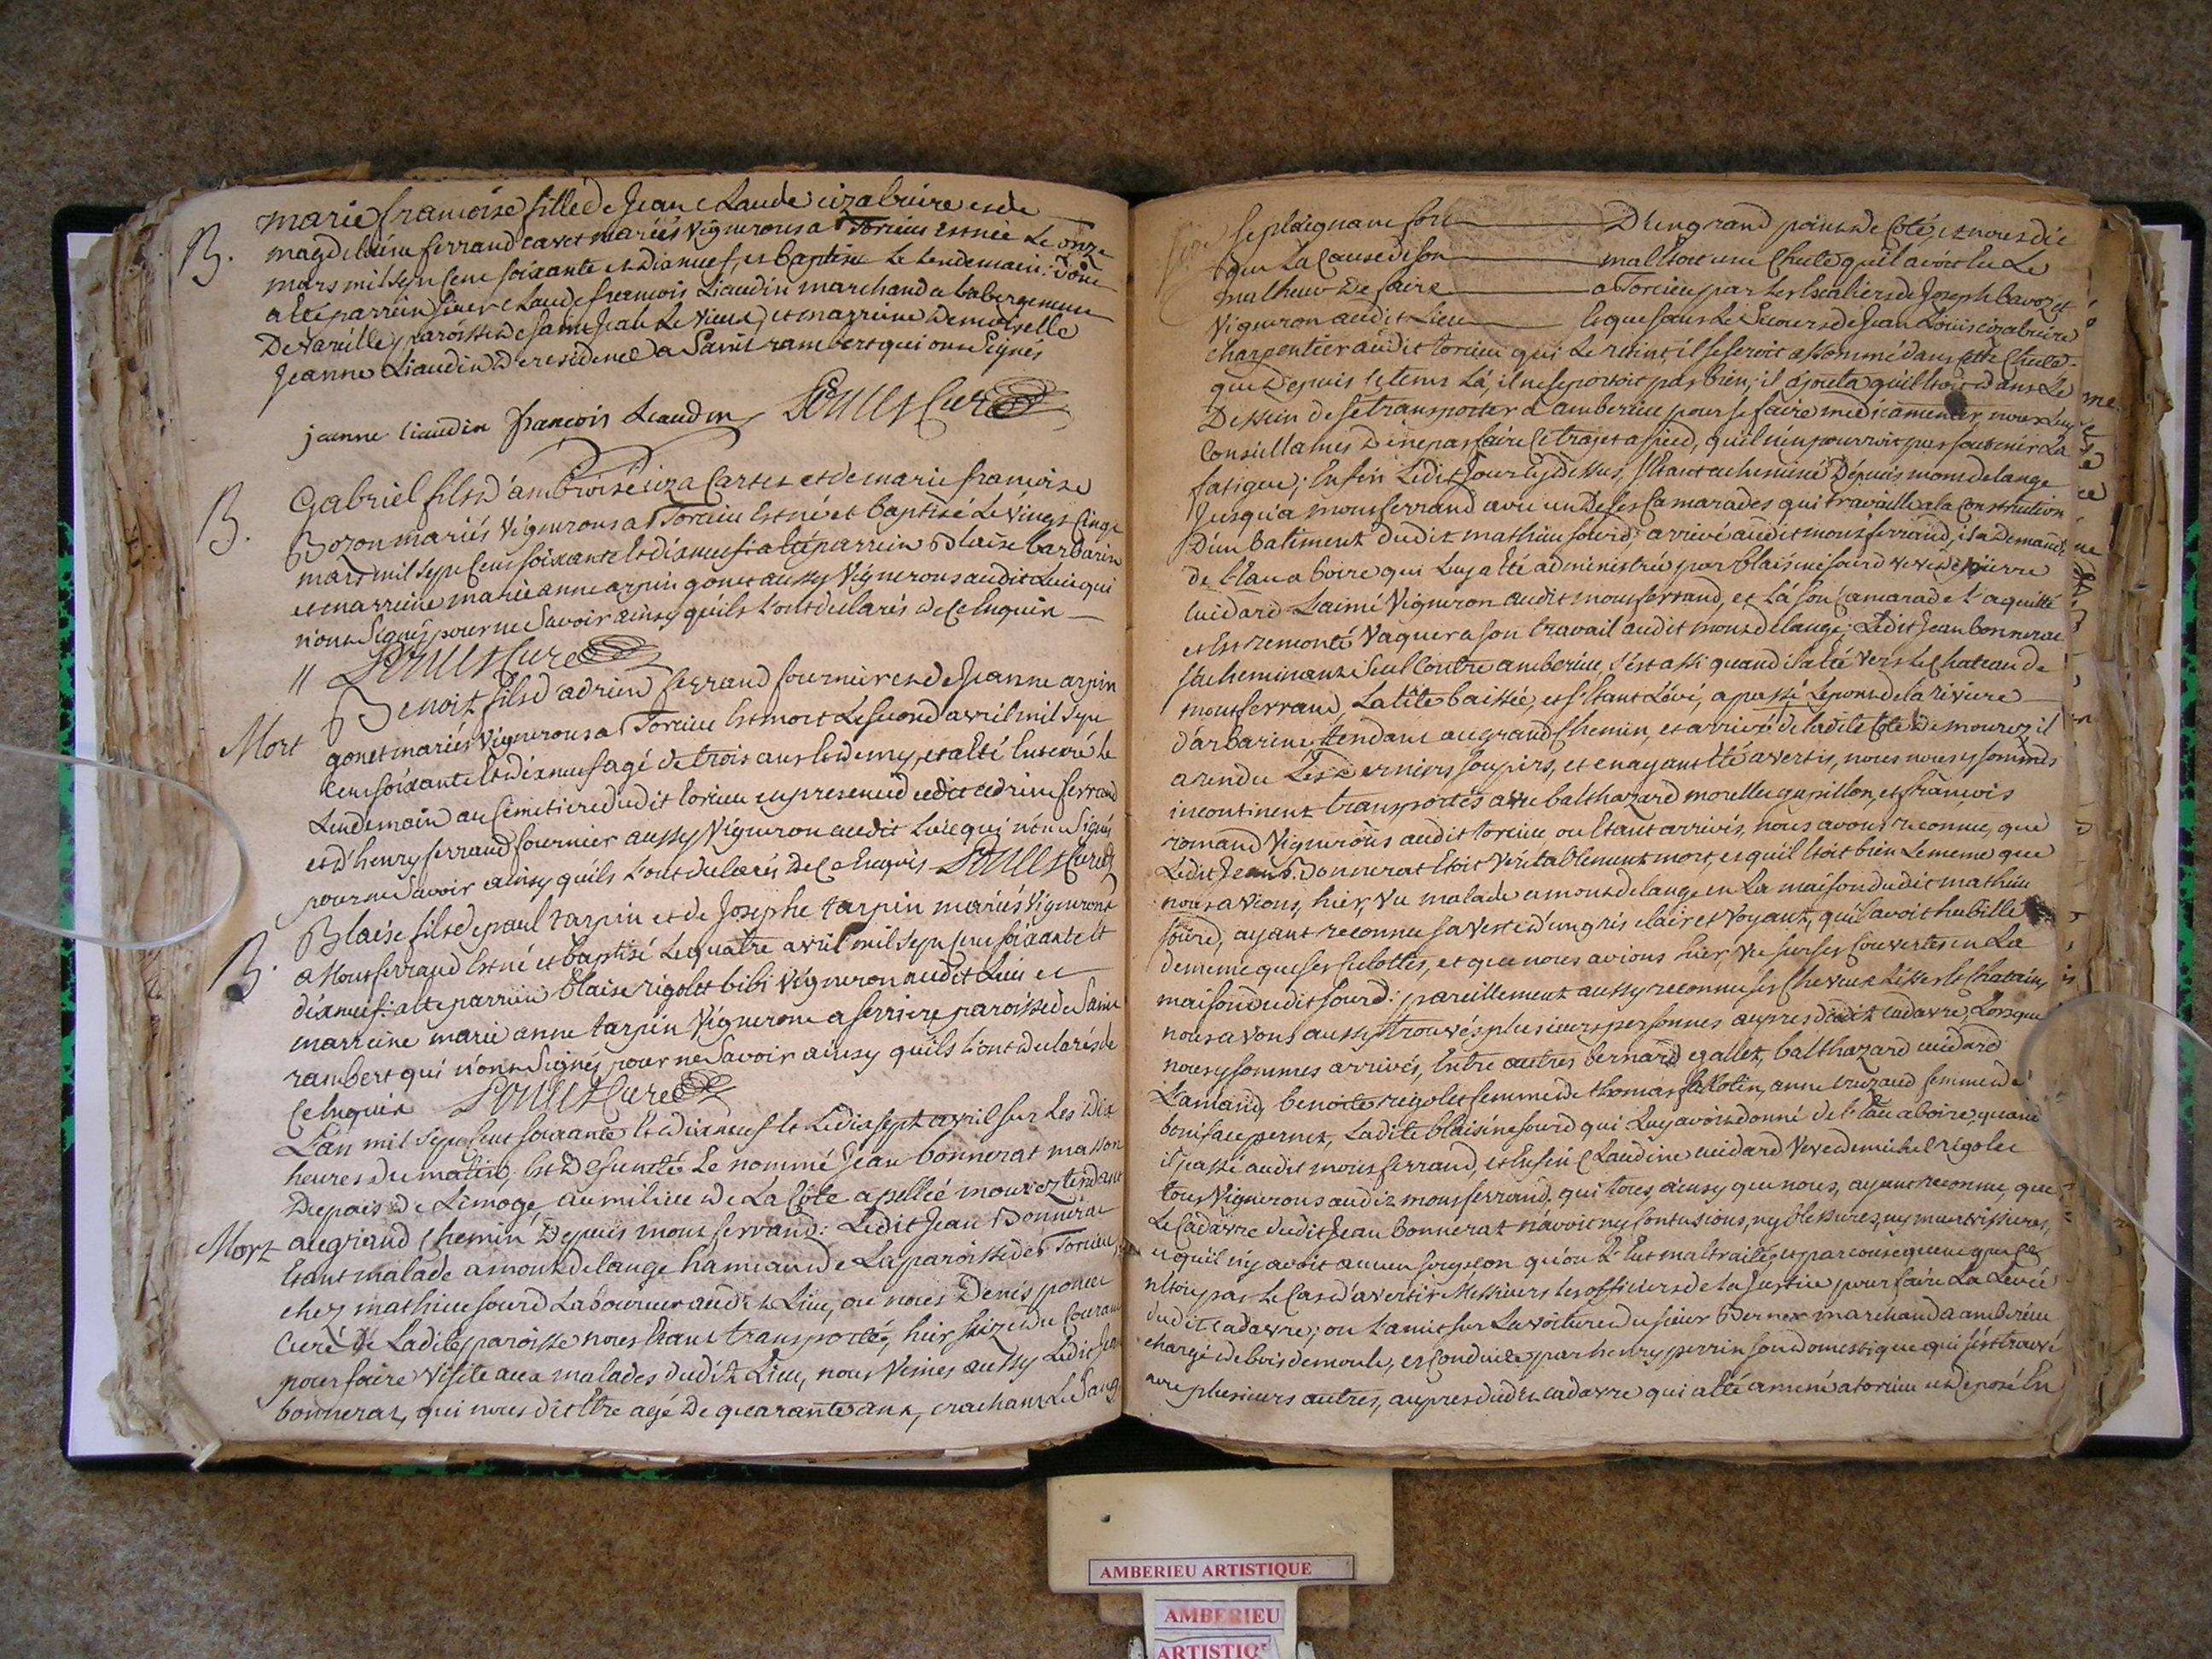 B. marie francoise fille de Jean Claude cizabuire et de
magdelaine ferrand cavet mariés vignerons a Torcieu est née le onze
mars mil sept cent soixante et dixneuf, et baptisée le lendemain: don
a été parrein sieur Claude francois Liaudin marchand a labergement
De Varille, paroisse de saint Jean le Vieux, et marreine Demoiselle
Jeanne Liaudin De residence a Saint rambert qui ont Signés
jeanne liaudin francois Leaudin Curé
B. Gabriel fils d'ambroise et de marie francoise
Bozon mariés Vignerons a Torcieu est né et baptisé le vingt cinq
mars mil sept cent soixante et dixneuf: a été parrein Blaise barbarin
et marreine marie anne arpin gonet aussy Vignerons audit Lieu qui
n'ont Signé pour ne Savoir ainsy qu'ils l'ont declarés de ce Enquis
" Curé
Mort Benoit fils d'adrien ferrand fournier et de Jeanne arpin
gonet mariés Vignerons a Torcieu est mort le second avril mil sept
cent soixante et dixneuf agé de trois ans et demy, et a été Enterré le
Lendemain au cimetiere dudit torcieu en presence dudit adrien ferrand
et d'henry ferrand fournier aussy Vigneron audit Lieu qui n'ont Signé
pour ne Savoir ainsy qu'ils l'ont declarés de ce Enquis Curé
B. Blaise fils de paul tarpin et de Josephe tarpin mariés Vignerons
a Montferrand est né et baptisé le quatre avril mil sept cent soixante et
dixneuf: a été parrein blaise rigolet bibi Vigneron audit Lieu et
marreine marie anne tarpin Vigneronne a serriere paroisse de Saint
rambert qui n'ont Signés pour ne Savoir ainsy qu'ils l'ont declarés de
ce Enquis Curé
L'an mil sept cent soixante et dixneuf et le dix sept avril sur les dix
heures du matin, est Defuncté Le nommé Jean bonnerat masson
Du pais de Limoge, au milieu de La Côte apellée mourez tendant
Mort au grand chemin Depuis montferrand: Ledit Jean Bonnerat
Etant malade a mont de lange hameau de La paroisse de Torcieu
chez mathieu sourd Laboureur audit Lieu, ou nous Denis
Curé de Ladite paroisse nous Etant transporté, hier seize du courant
pour faire visite aux malades dudit Lieu, nous Vimes aussy Ledit Jean
bonnerat, qui nous dit Etre agé de quarante ans, crachant Le Sang
se plaignant fort D'un grand point de Coté, et nous dit
que La Cause de son mal Etoit une Chute qu'il avoit Eu Le
malheur De faire a Torcieu par Les Escaliers de Joseph
Vigneron audit Lieu Et que sans Le Secours de Jean Louis cizabuire
charpentier audit torcieu qui Le retint, il se seroit assommé dans cette Chute
que Depuis ce tems La, il ne se portoit pas bien; il ajouta qu'il Etoit dans Le
Dessein de se transporter a amberieu pour se faire medicamenter, nous Luy
Conseillames De ne pas faire ce trajet a pied, qu'il n'en pourroit pas soutenir La
fatigue; Enfin Ledit Jour cy dessus, s'Etant acheminé Depuis mont de lange
Jusqu'a montferrand avec un de ses Camarades qui travaille a la Construction
D'un batiment dudit mathieu sourd; arrivé audit montferrand, il a Demandé
de l'Eau a boire qui Luy a été administrée par blaisine sourd veve de pierre
cuidard Lainé Vigneron audit montferrand, et La son Camarade L'a quitté
et Est remonté Vaquer a son travail audit mont de lange; Ledit Jean bonnerat
s'acheminant Seul Contre amberieu, s'est assi quand il a été vers Le Chateau de
montferrand, La tête baissée, et s'Etant Levé, a passé Le pont de la riviere
d'arbarine tendant au grand Chemin, et arrivé de Ladite Cote de mourez il
a rendu Les derniers soupirs, et en ayant Eté avertis, nous nous y sommes
incontinent transportés avec balthazard morellet, et francois
romand Vignerons audit torcieu ou Etant arrivés, nous avons reconnu, que
Ledit Jean Bonnerat Etoit veritablement mort, et qu'il Etoit bien Le meme que
nous avions, hier, Vu malade a mont de lange en La maison dudit mathieu
sourd, ayant reconnu sa veste d'un gris clair et voyant, qu'il avoit habillé
de meme que ses culottes, et que nous avions hier, Vu sur ses Couvertes en La
maison dudit sourd: pareillement aussy reconnu ses Cheveux Lisses et Chatains
nous avons aussy trouvés plusieurs personnes aupres dudit cadavre, Lorsque
nous y sommes arrivés, Entre autres bernard egallet, balthazard cuidard
Lamand, benoite rigolet femme de thomas, anne cruzaud femme de
boniface pernet, Ladite blaisine sourd qui Luy avoit donné de l'Eau a boire, quand
il passé audit montferrand, et Enfin Claudine cuidard Veve de michel rigolet
tous Vignerons audit montferrand, qui tous, ainsy que nous, ayant reconnu, que
Le Cadavre dudit Jean bonnerat n'avoit ny Contusions, ny blessures, ny meurtrissures,
et qu'il n'y avoit aucun soupscon qu'on L'Eut maltraité, et par consequent que ce
n'Etoit pas Le Cas d'avertir Messieurs Les officiers de La Justice pour faire La Levée
dudit cadavre; on L'a mit sur La voiture du sieur Bernex marchand a amberieu
chargé de bois de moule, et Conduite par henry perrin son domestique qui s'est trouvé
avec plusieurs autres, aupres dudit cadavre qui a été amené a torcieu et deposé En
AMBERIEU ARTISTIQUE
AMBERIEU